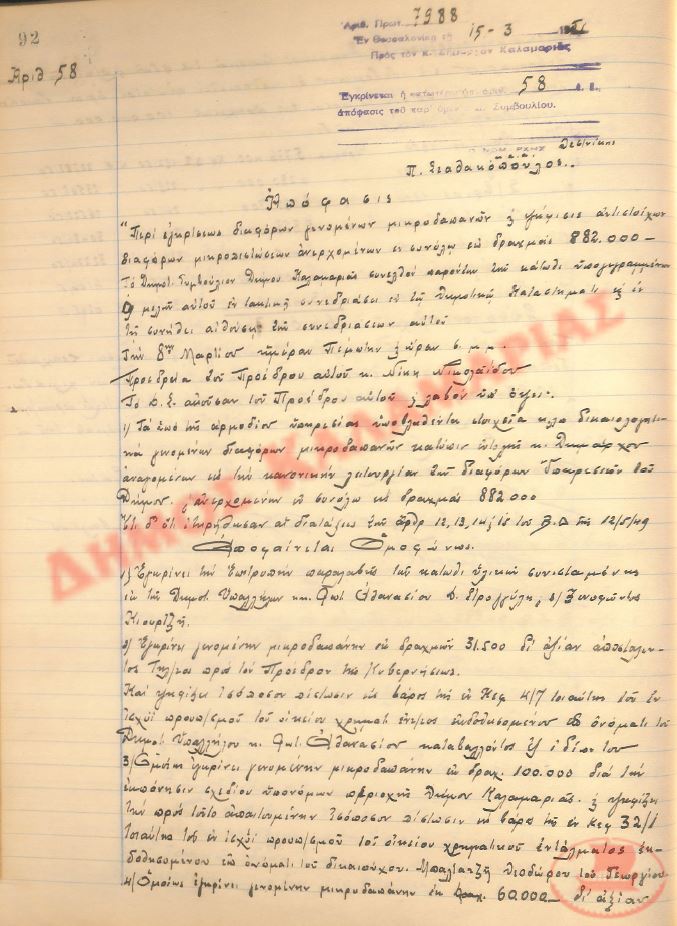 92
Ἀριθ 58
Ἀριθ. Πρωτ. 7988
Ἐν Θεσσαλονίκῃ τῇ 15-3
Πρὸς τὸν κ. Δήμαρχον Καλαμαριᾶς
Ἐγκρίνεται ἡ ὑπ' ἀριθ. 58
ἀπόφασις τοῦ παρ' ὑμῖν Συμβουλίου.
Ὁ ΝΟΜΑΡΧΗΣ Θεσ/νίκης
Π. Σταθακόπουλος
Ἀπόφασις
"Περὶ ἐγκρίσεως διαφόρων γενομένων μικροδαπανῶν & ψήφισις ἀντιστοίχων
διαφόρων μικροπιστώσεων ἀνερχομένων ἐν συνόλῳ εἰς δραχμὰς 882.000-
Τὸ Δημοτ. Συμβούλιον Δήμου Καλαμαριᾶς συνελθὸν παρόντων τῶν κάτωθι ὑπογεγραμμένων
9 μελῶν αὐτοῦ ἐν τακτικῇ συνεδριάσει ἐν τῷ Δημοτικῷ Καταστήματι & ἐν
τῇ συνήθει αἰθούσῃ τῶν συνεδριάσεων αὐτοῦ
Τὴν 8ην Μαρτίου ἡμέραν Πέμπτην & ὥραν 6 μ.μ.
Προεδρείᾳ τοῦ Προέδρου αὐτοῦ κ. Νίκη Νικολαΐδου
Τὸ Δ.Σ. ἀκοῦσαν τοῦ Προέδρου αὐτοῦ & λαβὸν ὑπ' ὄψει:
1) Τὰ ὑπὸ τῆς ἁρμοδίου ὑπηρεσίας ὑποβληθέντα στοιχεῖα κλπ δικαιολογητι-
κὰ γενομένων διαφόρων μικροδαπανῶν κατόπιν ἐντολῆς κ. Δημάρχου
ἀναγομένων εἰς τὴν κανονικὴν λειτουργίαν τῶν διαφόρων Ὑπηρεσιῶν τοῦ
Δήμου, ἀνερχομένων ἐν συνόλῳ εἰς δραχμὰς 882.000
Ἔτι δ' ὅτι ἐτηρήθησαν αἱ διατάξεις τῶν ἄρθρ 12, 13, 14 & 15 τοῦ Β.Δ τῆς 12/5/49
Ἀποφαίνεται Ὁμοφώνως.
1) Ἐγκρίνει τὴν Ἐπιτροπὴν παραλαβῆς τῶν κάτωθι ὑλικῶν συνισταμένης
ἐκ τῶν Δημοτ. Ὑπαλλήλων κ.κ. Φωτ. Ἀθανασίου Δ. Στρογγύλη, & Ξενοφῶντος
Κιουρτζῆ.
2) Ἐγκρίνει γενομένην μικροδαπάνην ἐκ δραχμῶν 31.500 δι' ἀξίαν ἀποσταλέν-
τος Τηλ/τος πρὸς τὸν Πρόεδρον τῆς Κυβερνήσεως.
Καὶ ψηφίζει ἰσόποσον πίστωσιν εἰς βάρος τῆς ἐν Κεφ 4/7 τοιαύτης τοῦ ἐν
ἰσχύϊ προϋπ/σμοῦ τοῦ οἰκείου χρηματ. ἐντ/τος ἐκδοθησομένου ἐπ' ὀνόματι τοῦ
Δημοτ. Ὑπαλλήλου κ. Φωτ. Ἀθανασίου καταβαλλόντος ἐξ ἰδίων του
3) Ὁμοίως ἐγκρίνει γενομένην μικροδαπάνην ἐκ δραχ. 100.000 διὰ τὴν
ἐκπόνησιν σχεδίου ὑπονόμων περιοχῆς Δήμου Καλαμαριᾶς. & ψηφίζει
τὴν πρὸς τοῦτο ἀπαιτουμένην ἰσόποσον πίστωσιν εἰς βάρος τῆς ἐν Κεφ 32/1
τοιαύτης τοῦ ἐν ἰσχύϊ προϋπ/σμοῦ τοῦ οἰκείου χρηματικοῦ ἐντάλματος ἐκ-
δοθησομένου ἐπ' ὀνόματι τοῦ δικαιούχου. Μπαλατζῆ Θεοδώρου τοῦ Γεωργίου
4) Ὁμοίως ἐγκρίνει γενομένην μικροδαπάνην ἐκ δραχ. 60.000- δι' ἀξίαν
ΔΗΜΟΣ ΚΑΛΑΜΑΡΙΑΣ